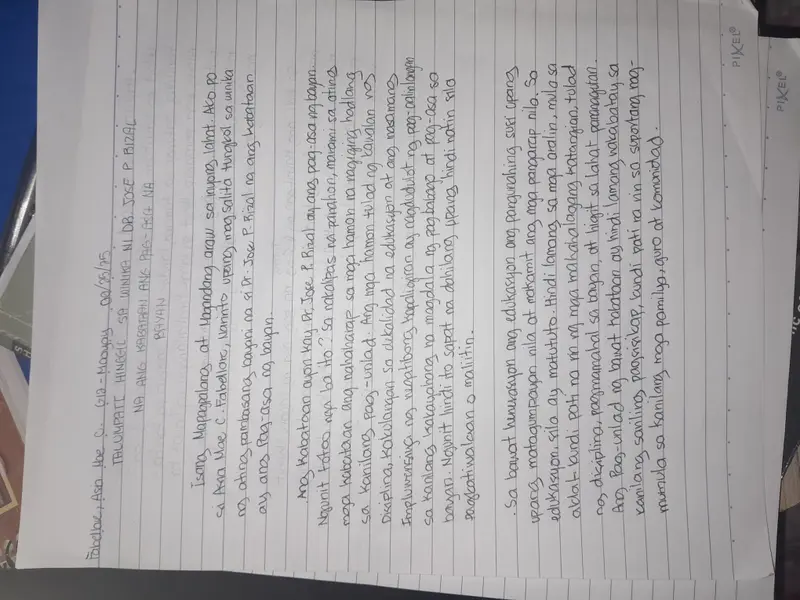 Fabellore, Asia Mae C. G12-Mabuhay 09/25/25
TALUMPATI HINGGIL SA WINIKA NI DR. JOSE P. RIZAL
NA ANG KABATAAN ANG PAG-ASA NA
BAYAN
Isang Mapagpalang at Magandang araw sa inyong lahat. Ako po
si Asia Mae C. Fabellore, Narinito upang magsalita tungkol sa winika
ng ating pambasang bayani na si Dr. Jose P. Rizal na ang kabataan
ay ang Pag-asa ng bayan.
Ang Kabataan ayon kay Dr. Jose P. Rizal ay ang pag-asa ng bayan.
Ngunit totoo nga ba ito? Sa nakalipas na panahon, marami sa ating
mga kabataan ang nahaharap sa mga hamon na nagiging hadlang
sa kanilang pag-unlad. Ang mga hamon tulad ng kawalan ng
Disiplina, kakulangan sa dekalidad na edukasyon at ang masamang
Impluwensiya ng negatibong kapaligiran ay nagdudulot ng pag-aalinlangan
sa kanilang kakayahang na magdala ng pagbabago at pag-asa sa
bayan. Ngunit hindi ito sapat na dahilang upang hindi natin sila
pagkatiwalaan o maliitin.
Sa bawat henerasyon ang edukasyon ang pangunahing susi upang
upang matagumpayan nila at makamit ang mga pangarap nila. Sa
edukasyon sila ay matututo. Hindi lamang sa mga aralin, mula sa
aklat kundi pati na rin ng mga mahahalagang katangian, tulad
ng disiplina, pagmamahal sa bayan, at higit sa lahat paninindigan.
Ang Pag-unlad ng bawat kabataan ay hindi lamang nakabatay sa
kanilang sariling pagsisikap, kundi pati na rin sa suportang nag-
mumula sa kanilang mga pamilya, guro at komunidad.
PIXEL®
PIXEL®